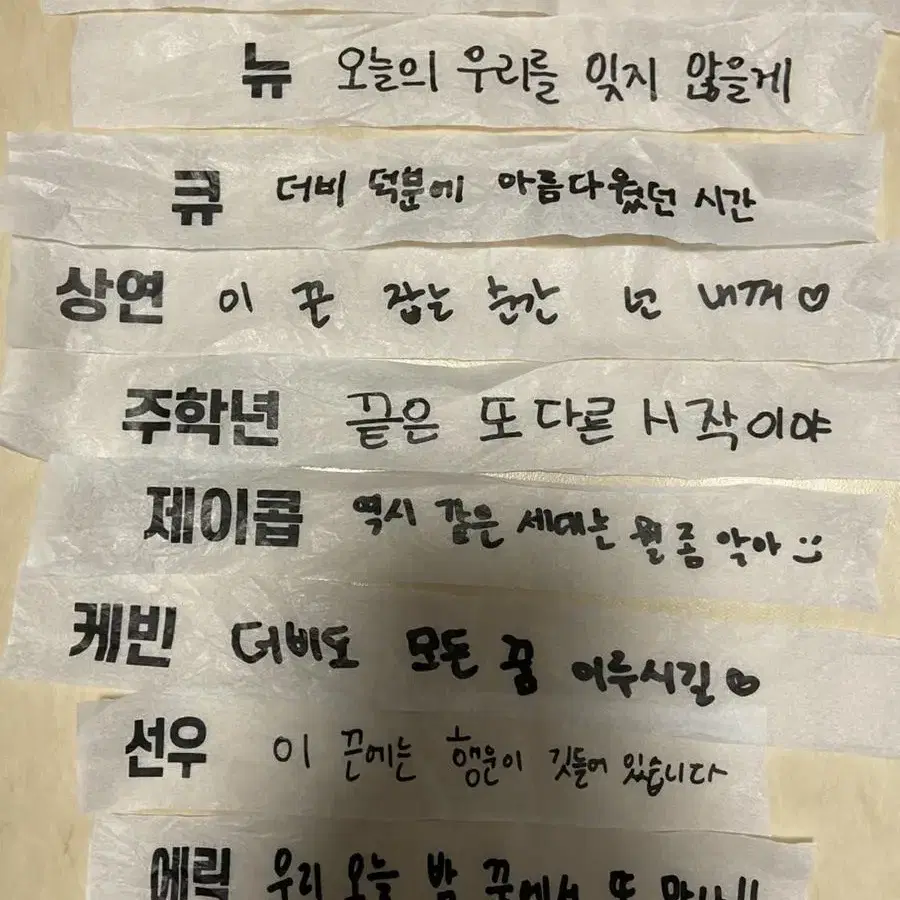 뉴 오늘의 우리를 잊지 않을게
큐 더비 덕분에 아름다웠던 시간
상연 이 끈 잡는 순간 넌 내꺼♡
주학년 끝은 또 다른 시작이야
제이콥 역시 같은 세대는 뭘 좀 알아 :)
케빈 더비도 모든 꿈 이루시길♡
선우 이 끈에는 행운이 깃들어 있습니다
에릭 우리 오늘 밤 꿈에서 또 만나!!